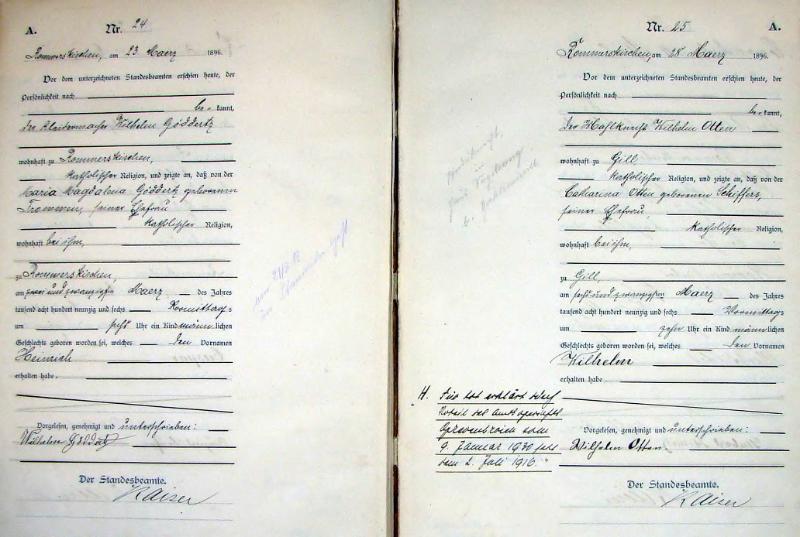 A. Nr. 24
Rommerskirchen, am 23 Maerz 1896.
Vor dem unterzeichneten Standesbeamten erschien heute, der
Persönlichkeit nach
be- kannt,
der Wilhelm Göddertz
wohnhaft zu Rommerskirchen,
katholischer Religion, und zeigte an, daß von der
Maria Magdalena Göddertz geborenen
Trommen, seiner Ehefrau
katholischer Religion,
wohnhaft bei ihm,
zu Rommerskirchen,
am zwei und zwanzigsten Maerz des Jahres
tausend acht hundert neunzig und sechs Vormittags
um Uhr ein Kind männlichen
Geschlechts geboren worden sei, welches den Vornamen
Heinrich
erhalten habe.
Vorgelesen, genehmigt und unterschrieben:
Wilhelm Göddertz
Der Standesbeamte.
Kaiser
Nr. 25 A.
Rommerskirchen, am 28 Maerz 1896.
Vor dem unterzeichneten Standesbeamten erschien heute, der
Persönlichkeit nach
be- kannt,
der Wilhelm Otten
wohnhaft zu Gill,
katholischer Religion, und zeigte an, daß von der
Catharina Otten geborenen Schiffers,
seiner Ehefrau,
katholischer Religion,
wohnhaft bei ihm,
zu Gill,
am und zwanzigsten Maerz des Jahres
tausend acht hundert neunzig und sechs Vormittags
um zehn Uhr ein Kind männlichen
Geschlechts geboren worden sei, welches den Vornamen
Wilhelm
erhalten habe.
H. Für tot erklärt durch
Urteil des Amtsgerichts
Grevenbroich vom
9. Januar 1930
vom 2. Juli 1916.
Vorgelesen, genehmigt und unterschrieben:
Wilhelm Otten
Der Standesbeamte.
Kaiser